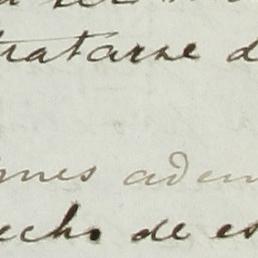 tratarse d
mes adem
echo de es